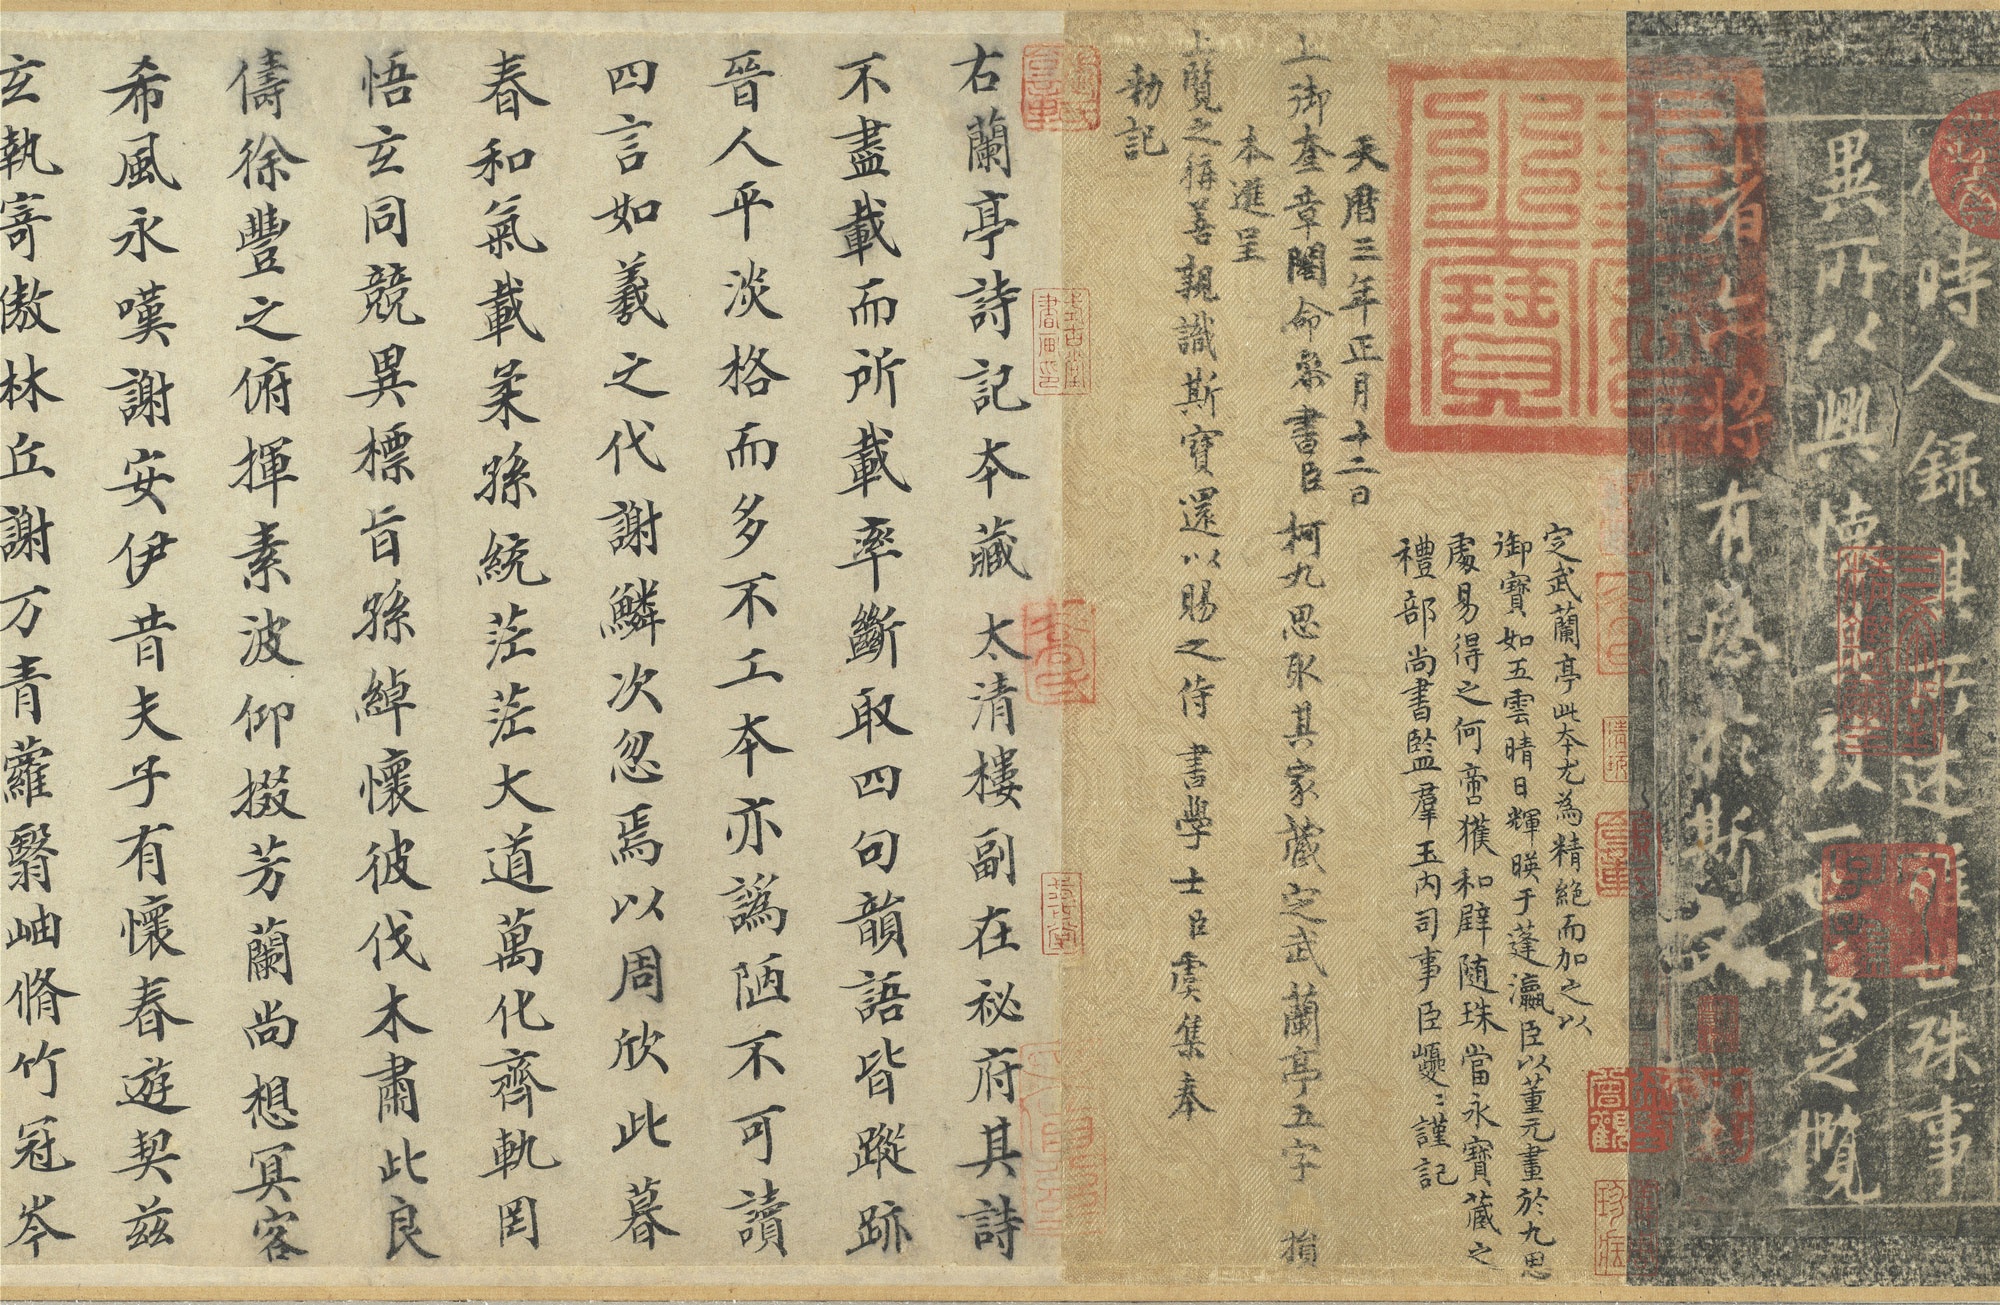 時人錄其所述雖世殊事
異所以興懷其致一也後之攬
者亦將有感於斯文
天曆之寶
定武蘭亭此本尤為精絶而加之以
御寶如五雲晴日輝暎于蓬瀛臣以董元畫於九思
處易得之何啻獲和璧隨珠當永寶藏之
禮部尚書監羣玉內司事臣巙〻謹記
天曆三年正月十二日
上御奎章閣命叅書臣柯九思取其家藏定武蘭亭五字損
本進呈
上覽之稱善親識斯寶還以賜之侍書學士臣虞集奉
勑記
右蘭亭詩記本藏太清樓副在祕府其詩
不盡載而所載率斷取四句韻語皆蹤跡
晉人平淡格而多不工本亦譌陋不可讀
四言如羲之代謝鱗次忽焉以周欣此暮
春和氣載柔孫統茫茫大道萬化齊軌罔
悟玄同競異標旨孫綽懷彼伐木肅此良
儔徐豐之俯揮素波仰掇芳蘭尚想冥客
希風永嘆謝安伊昔夫子有懷春遊契茲
玄執寄傲林丘謝万青蘿翳岫脩竹冠岑